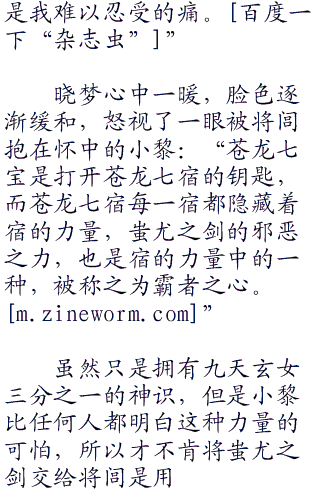 是我难以忍受的痛。[百度一
下“杂志虫”]”
晓梦心中一暖，脸色逐
渐缓和，怒视了一眼被将闾
抱在怀中的小黎：“苍龙七
宝是打开苍龙七宿的钥匙，
而苍龙七宿每一宿都隐藏着
宿的力量，蚩尤之剑的邪恶
之力，也是宿的力量中的一
种，被称之为霸者之心。
[m.zineworm.com]”
虽然只是拥有九天玄女
三分之一的神识，但是小黎
比任何人都明白这种力量的
可怕，所以才不肯将蚩尤之
剑交给将闾是用